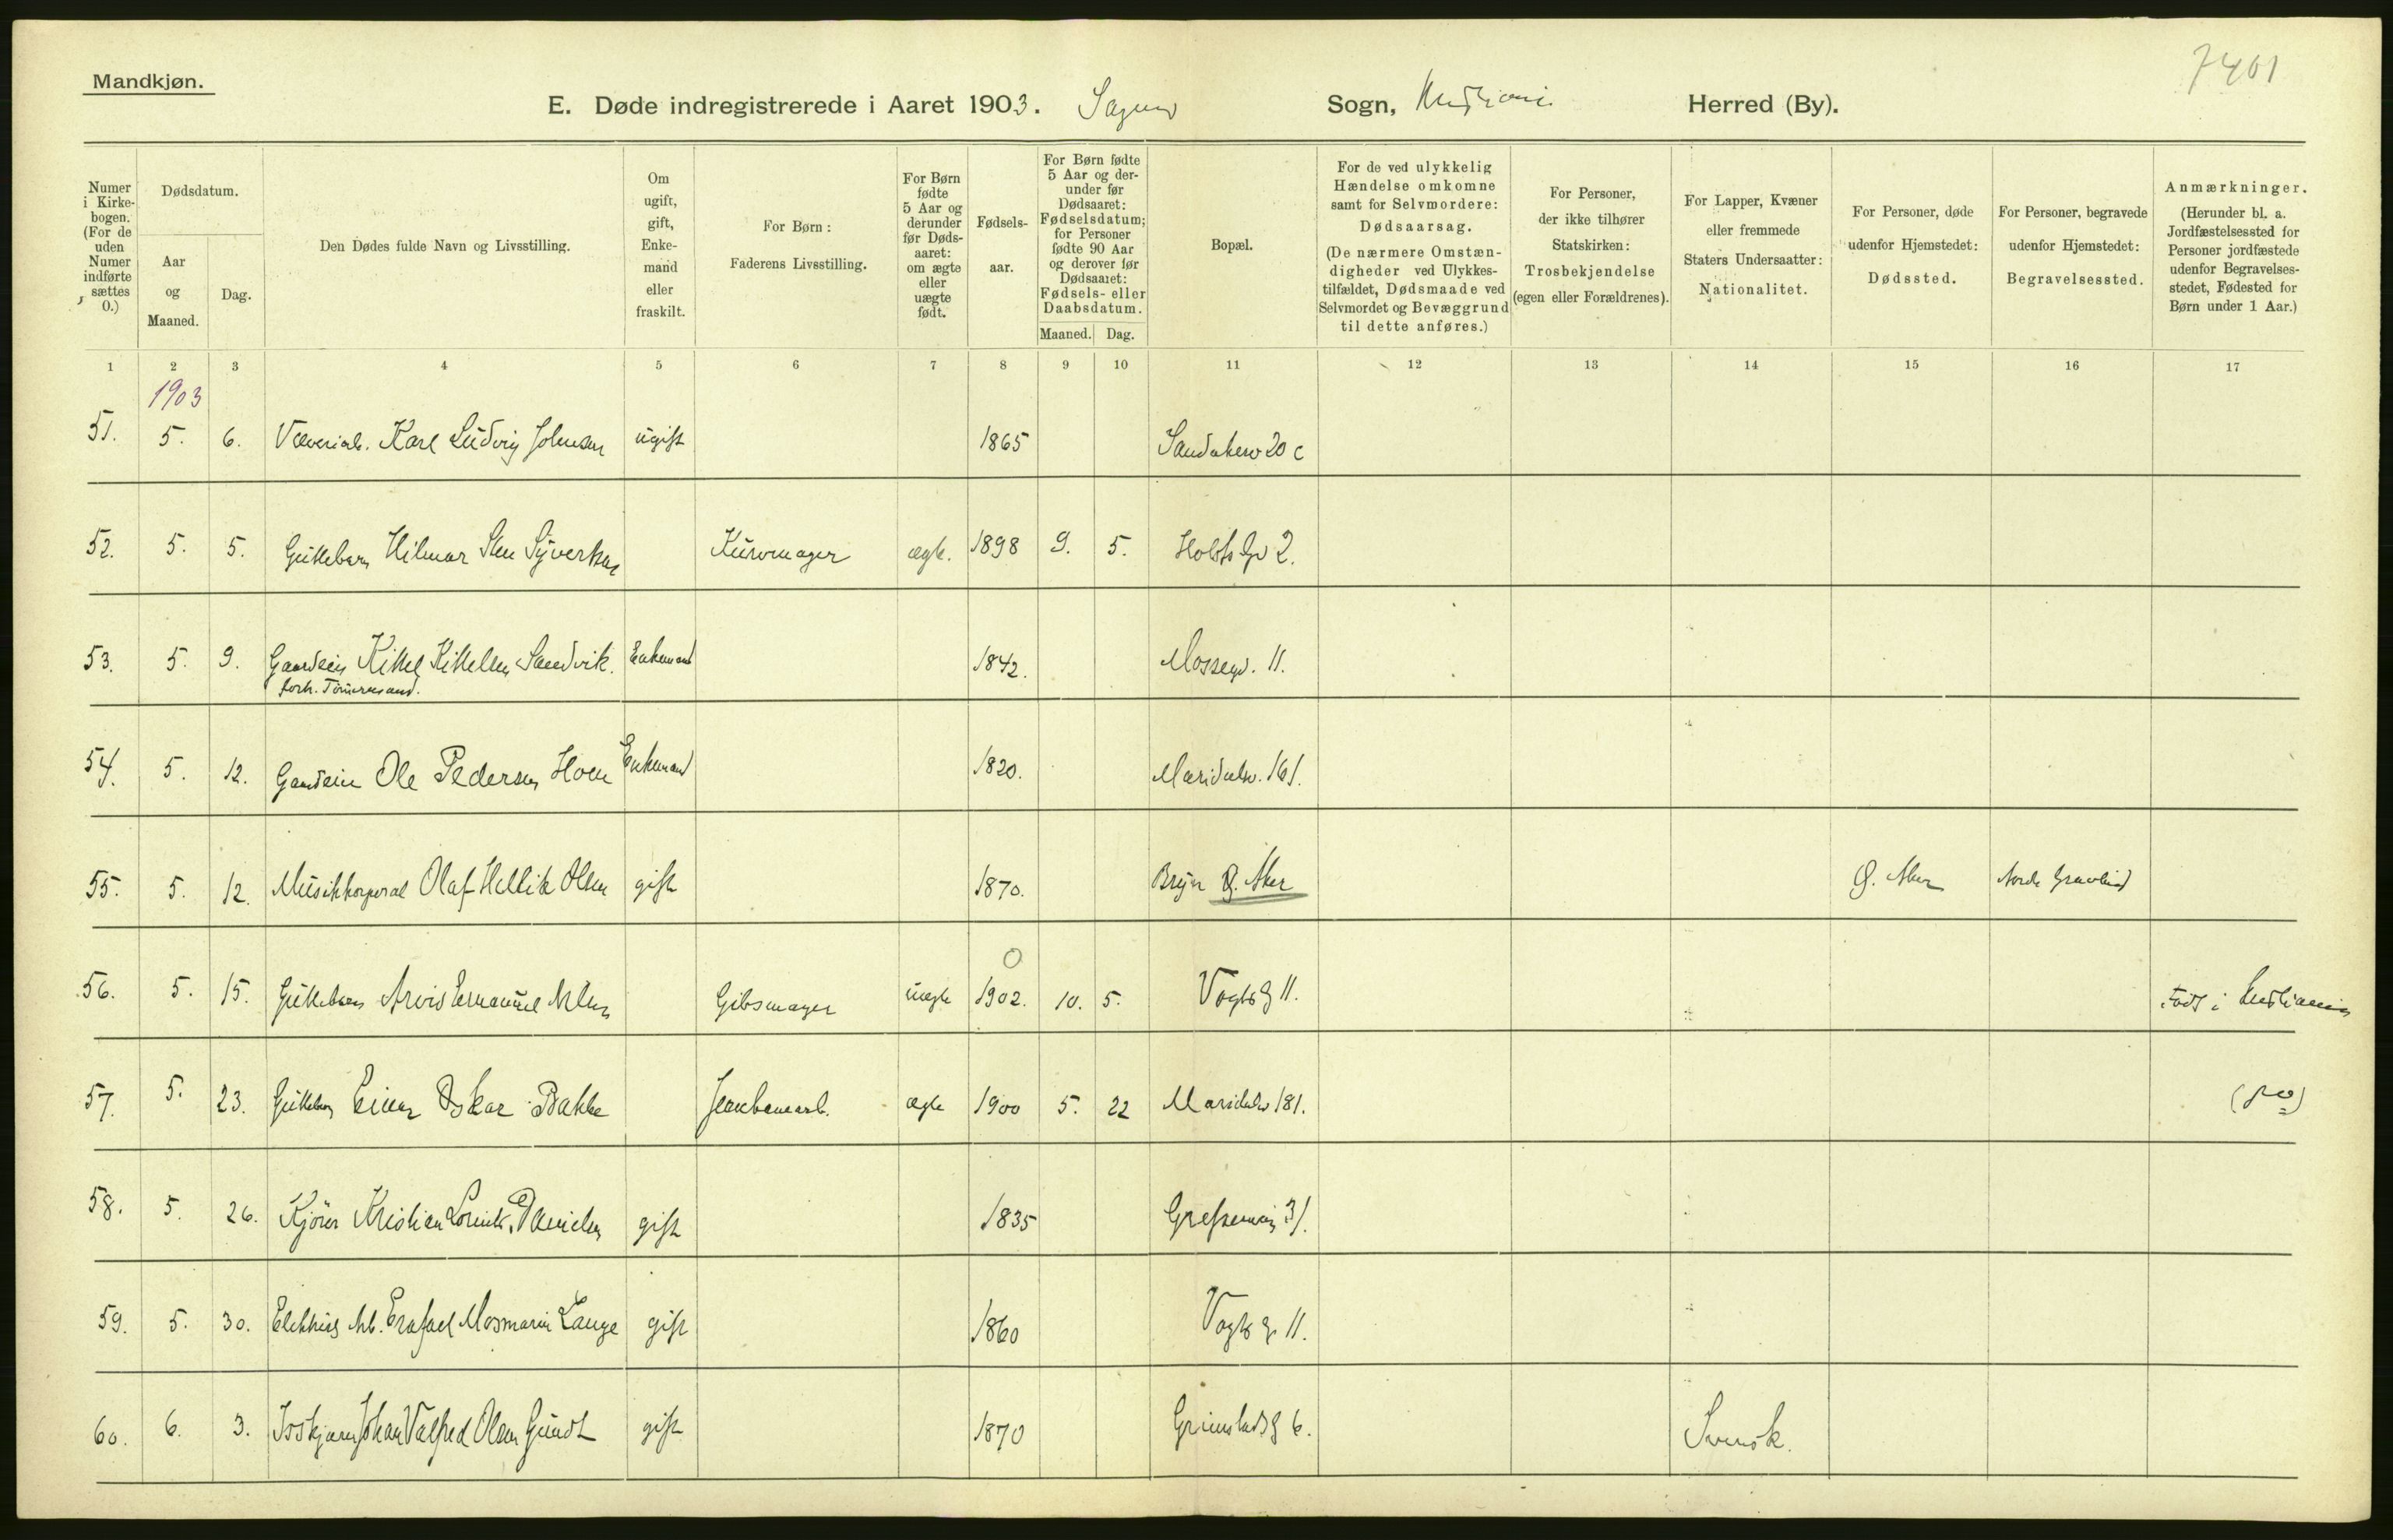 7401
Mandkjøn.
E. Døde indregistrerede i Aaret 1903. Sagene Sogn, Kristiania Herred (By).
Numer i Kirkebogen. (For de uden Numer indførte sættes 0.)
Dødsdatum.
Aar og Maaned.
Dag.
Den Dødes fulde Navn og Livsstilling.
Om ugift, gift, Enkemand eller fraskilt.
For Børn: Faderens Livsstilling.
For Børn fødte 5 Aar og derunder før Dødsaaret: om ægte eller uægte født.
Fødselsaar.
For Børn fødte 5 Aar og derunder før Dødsaaret: Fødselsdatum; for Personer fødte 90 Aar og derover før Dødsaaret: Fødsels- eller Daabsdatum.
Maaned. Dag.
Bopæl.
For de ved ulykkelig Hændelse omkomne samt for Selvmordere: Dødsaarsag. (De nærmere Omstændigheder ved Ulykkestilfældet, Dødsmaade ved Selvmordet og Bevæggrund til dette anføres.)
For Personer, der ikke tilhører Statskirken: Trosbekjendelse (egen eller Forældrenes).
For Lapper, Kvæner eller fremmede Staters Undersaatter: Nationalitet.
For Personer, døde udenfor Hjemstedet: Dødssted.
For Personer, begravede udenfor Hjemstedet: Begravelsessted.
Anmærkninger. (Herunder bl. a. Jordfæstelsessted for Personer jordfæstede udenfor Begravelsesstedet, Fødested for Børn under 1 Aar.)
1 2 3 4 5 6 7 8 9 10 11 12 13 14 15 16 17
1903
51. 5. 6. Karl Ludvig Johnsen ugift 1865 Sandakerv 20 c
52. 5. 5. Guttebarn Hilmar Sten Syversen Kurvmager ægte. 1898 9. 5. Holsts Gd 2.
53. 5. 9. Gaardeier Kittel Kittelsen Sandvik. Enkemand 1842. Mossegd. 11.
forh. Tømmermand.
54. 5. 12. Gaardeier Ole Pedersen Hoen Enkemand 1820. Maridalsv. 161.
55. 5. 12. Musikkorporal Olaf Hellik Olsen gift 1870. Bryn Ø. Aker Ø. Aker Nordre Gravlund
0
56. 5. 15. Guttebarn Arvid Emanuel Gibsmager uægte 1902. 10. 5. Vogtsg 11. Født i Kristiania
57. 5. 23. Guttebarn Einar Oskar Bakke Jernbanearb. ægte 1900 5. 22 Maridalsv 181. (do)
58. 5. 26. Kjører Kristian Danielsen gift 1835 Grefsenvei 31.
59. 5. 30. Arb. Lange gift 1860 Vogtsg 11.
60. 6. 3. Johan Valfred Olsen Gundt gift 1870 Grimstadsg 6. Svensk.